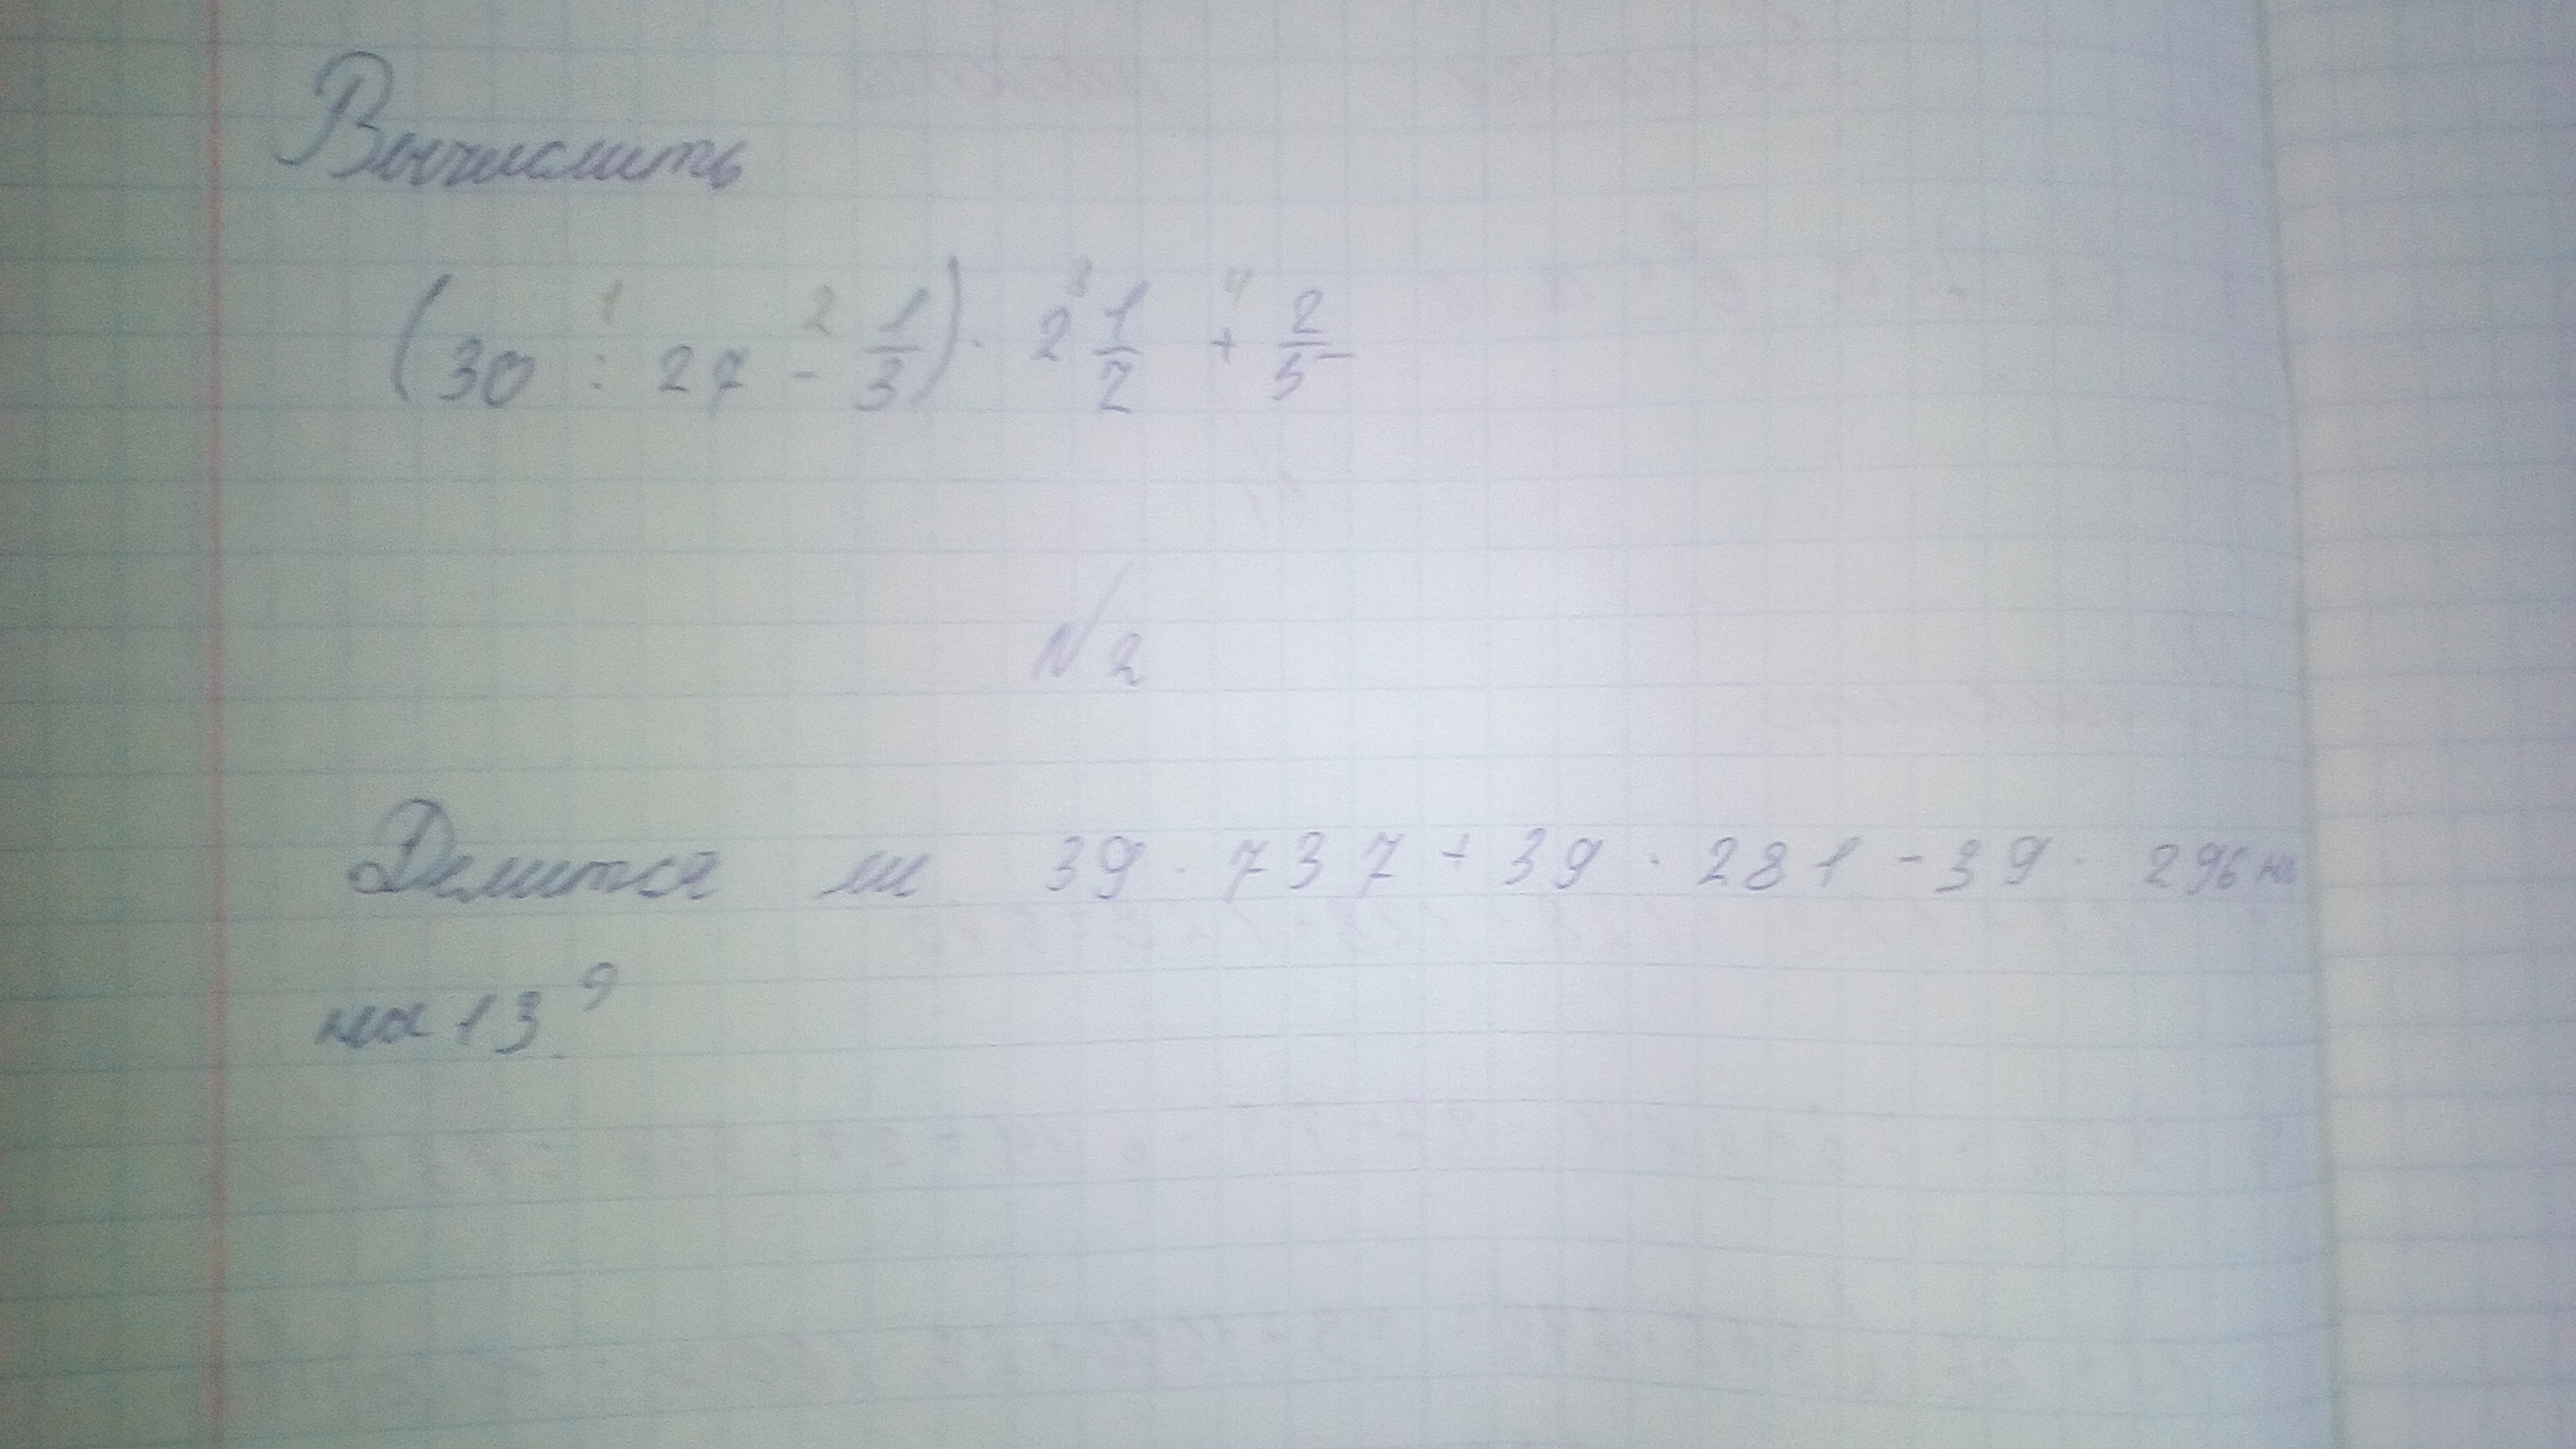 Вычислить
(30 : 27 - 1/3) · 2 1/2 + 2/5
1 2 3 4
N2
Делится ли 39 · 737 + 39 · 281 - 39 · 296 на
на 13?